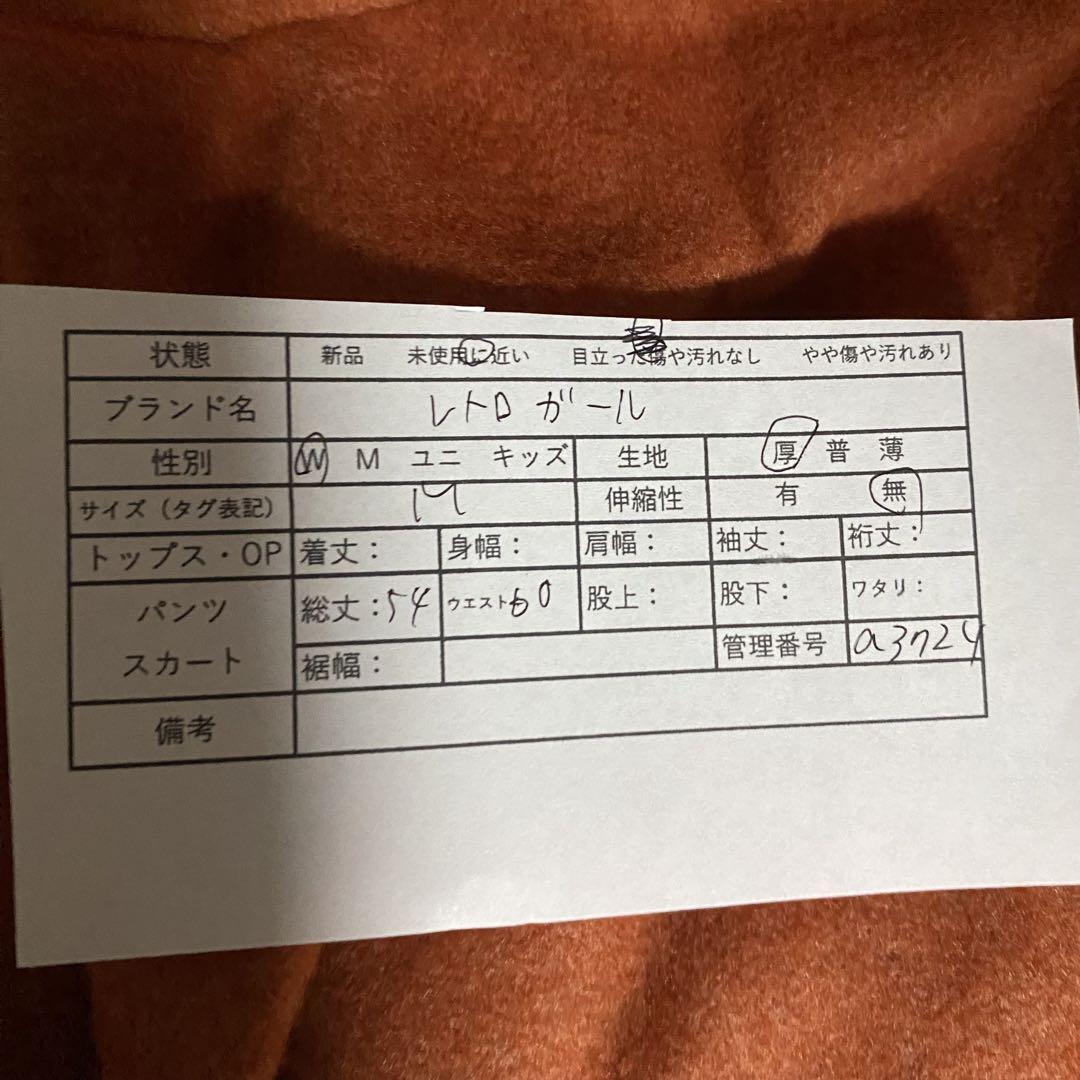 状態 新品 未使用に近い 目立った傷や汚れなし やや傷や汚れあり
ブランド名 レトロガール
性別 W M ユニ キッズ 生地 厚 普 薄
サイズ（タグ表記） M 伸縮性 有 無
トップス・OP 着丈： 身幅： 肩幅： 袖丈： 裄丈：
パンツ 総丈：54 ウエスト60 股上： 股下： ワタリ：
スカート 裾幅： 管理番号 a3724
備考